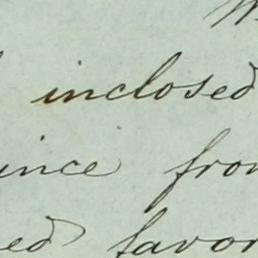 inclosed
ince from
ed favor